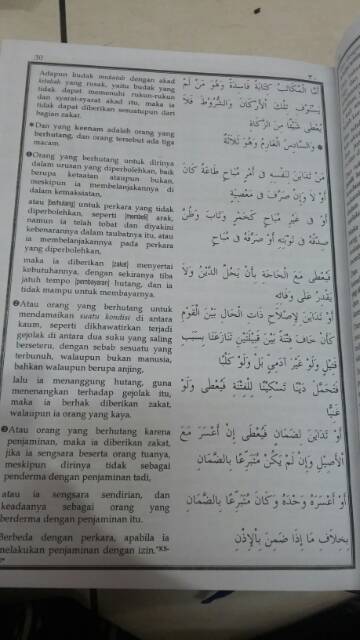 30
Adapun budak mukatab dengan akad
kitabah yang rusak, yaitu budak yang
tidak dapat memenuhi rukun-rukun
dan syarat-syarat akad itu, maka ia
tidak dapat diberikan sesuatupun dari
bagian zakat.
Dan yang keenam adalah orang yang
berhutang, dan orang tersebut ada tiga
macam.
Orang yang berhutang untuk dirinya
dalam urusan yang diperbolehkan, baik
berupa ketaatan ataupun bukan,
meskipun ia membelanjakannya di
dalam kemaksiatan,
atau [berhutang] untuk perkara yang tidak
diperbolehkan, seperti [membeli] arak,
namun ia telah tobat dan diyakini
kebenarannya dalam taubatnya itu, atau
ia membelanjakannya pada perkara
yang diperbolehkan,
maka ia diberikan [zakat] menyertai
kebutuhannya, dengan sekiranya tiba
jatuh tempo [pembayaran] hutang, dan ia
tidak mampu untuk membayarnya.
Atau orang yang berhutang untuk
mendamaikan suatu kondisi di antara
kaum, seperti dikhawatirkan terjadi
gejolak di antara dua suku yang saling
berseteru, dengan sebab sesuatu yang
terbunuh, walaupun bukan manusia,
bahkan walaupun berupa anjing,
lalu ia menanggung hutang, guna
menenangkan terhadap gejolak itu,
maka ia berhak diberikan zakat,
walaupun ia orang yang kaya.
Atau orang yang berhutang karena
penjaminan, maka ia diberikan zakat,
jika ia sengsara beserta orang tuanya,
meskipun dirinya tidak sebagai
penderma dengan penjaminan tadi,
atau ia sengsara sendirian, dan
keadaannya sebagai orang yang
berderma dengan penjaminan itu.
Berbeda dengan perkara, apabila ia
melakukan penjaminan dengan izin.
٣٠
أَمَّا الْمُكَاتَبُ كِتَابَةً فَاسِدَةً وَهُوَ مَنْ لَمْ
يَسْتَوْفِ تِلْكَ الْأَرْكَانَ وَالشُّرُوْطَ فَلَا
يُعْطَى شَيْئًا مِنَ الزَّكَاةِ
وَالسَّادِسُ الْغَارِمُ وَهُوَ ثَلَاثَةٌ
مَنْ تَدَايَنَ لِنَفْسِهِ فِي أَمْرٍ مُبَاحٍ طَاعَةً كَانَ
أَوْ لَا وَإِنْ صَرَفَ فِي مَعْصِيَةٍ
أَوْ فِي غَيْرِ مُبَاحٍ كَخَمْرٍ وَتَابَ وَظُنَّ
صِدْقُهُ فِي تَوْبَتِهِ أَوْ صَرَفَهُ فِي مُبَاحٍ
فَيُعْطَى مَعَ الْحَاجَةِ بِأَنْ يَحُلَّ الدَّيْنُ وَلَا
يَقْدِرُ عَلَى وَفَائِهِ
أَوْ تَدَايَنَ لِإِصْلَاحِ ذَاتِ الْحَالِ بَيْنَ الْقَوْمِ
كَأَنْ خَافَ فِتْنَةً بَيْنَ قَبِيْلَتَيْنِ تَنَازَعَتَا بِسَبَبِ
قَتِيْلٍ وَلَوْ غَيْرَ آدَمِيٍّ بَلْ وَلَوْ كَلْبًا
فَتَحَمَّلَ دَيْنًا تَسْكِيْنًا لِلْفِتْنَةِ فَيُعْطَى وَلَوْ
غَنِيًّا
أَوْ تَدَايَنَ لِضَمَانٍ فَيُعْطَى إِنْ أَعْسَرَ مَعَ
الْأَصِيْلِ وَإِنْ لَمْ يَكُنْ مُتَبَرِّعًا بِالضَّمَانِ
أَوْ أَعْسَرَ وَحْدَهُ وَكَانَ مُتَبَرِّعًا بِالضَّمَانِ
بِخِلَافِ مَا إِذَا ضَمِنَ بِالْإِذْنِ